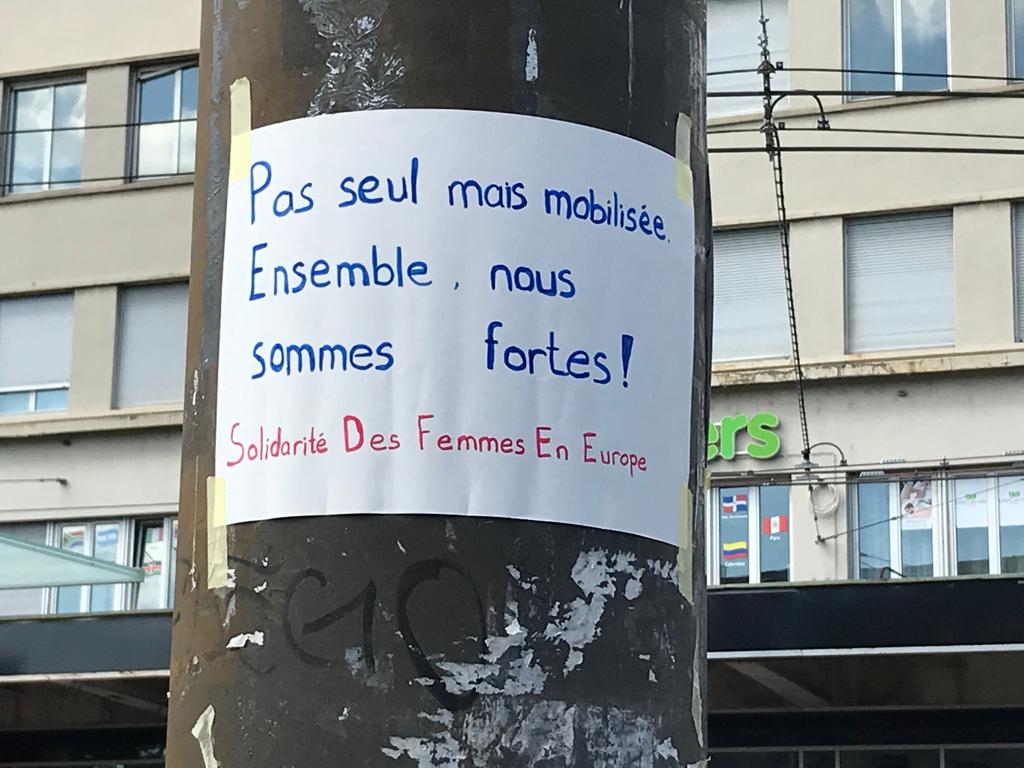 Pas seul mais mobilisée.
Ensemble, nous
sommes fortes!
Solidarité Des Femmes En Europe
ers